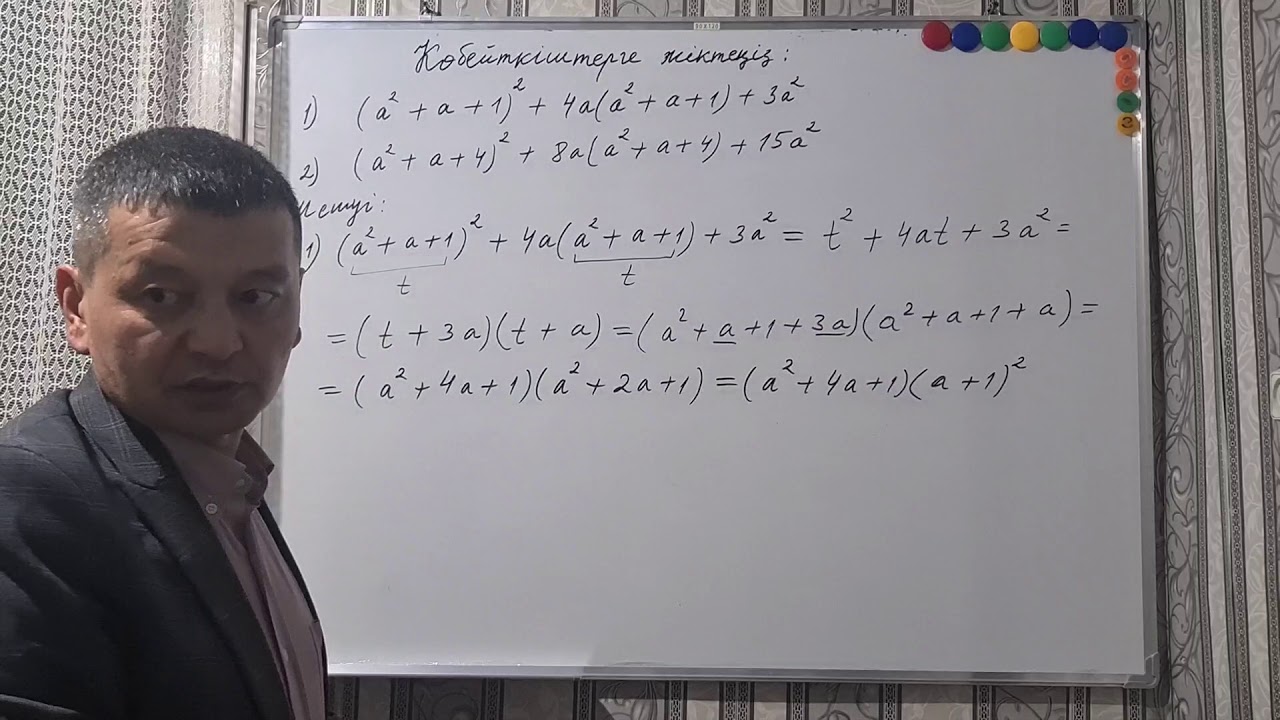 Көбейткіштерге жіктеңіз:
1) (a² + a + 1)² + 4a(a² + a + 1) + 3a²
2) (a² + a + 4)² + 8a(a² + a + 4) + 15a²
Шешуі:
1) (a² + a + 1)² + 4a(a² + a + 1) + 3a² = t² + 4at + 3a² =
t t
= (t + 3a)(t + a) = (a² + a + 1 + 3a)(a² + a + 1 + a) =
= (a² + 4a + 1)(a² + 2a + 1) = (a² + 4a + 1)(a + 1)²